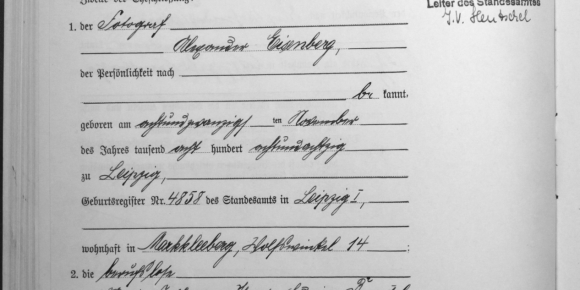 Leiter des Standesamtes
J.V. Hentschel
1. der Fotograf
Alexander Eisenberg,
der Persönlichkeit nach
be kannt.
geboren am achtundzwanzigsten November
des Jahres tausend acht hundert achtundachtzig
zu Leipzig,
Geburtsregister Nr. 4858 des Standesamts in Leipzig I,
wohnhaft in Markkleeberg, Wolfswinkel 14 ;
2. die berufslose